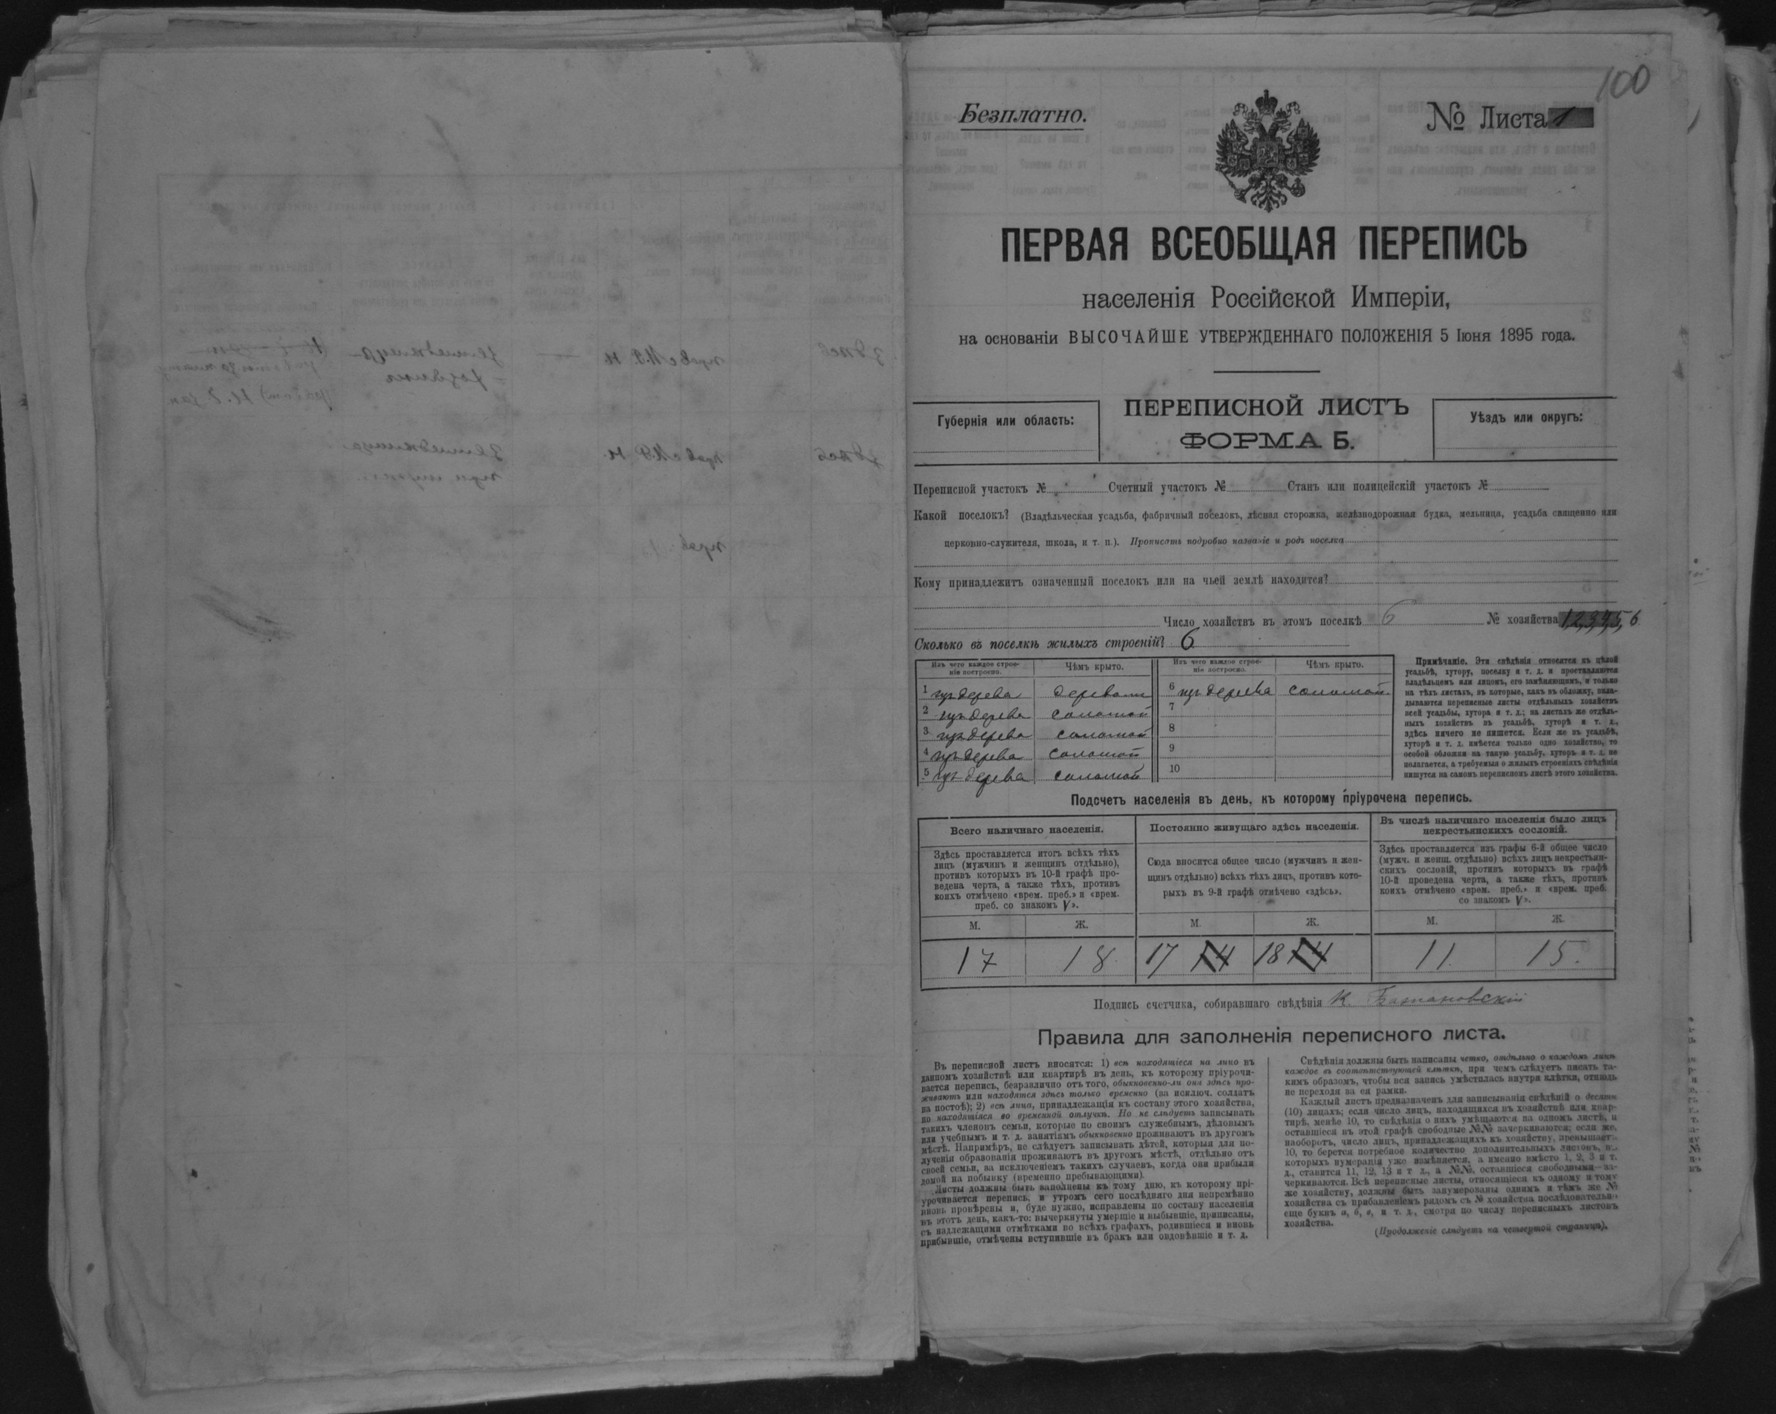 100
Безплатно.
№ Листа 1
ПЕРВАЯ ВСЕОБЩАЯ ПЕРЕПИСЬ
населенія Россійской Имперіи,
на основаніи ВЫСОЧАЙШЕ УТВЕРЖДЕННАГО ПОЛОЖЕНІЯ 5 Іюня 1895 года.
Губернія или область:
ПЕРЕПИСНОЙ ЛИСТЪ
ФОРМА Б.
Уѣздъ или округъ:
Переписной участокъ № Счетный участокъ № Станъ или полицейскій участокъ №
Какой поселокъ? (Владѣльческая усадьба, фабричный поселокъ, лѣсная сторожка, желѣзнодорожная будка, мельница, усадьба священно или
церковно-служителя, школа, и т. п.). Прописать подробно названіе и родъ поселка
Кому принадлежитъ означенный поселокъ или на чьей землѣ находится?
Число хозяйствъ въ этомъ поселкѣ 6 № хозяйства 1,2,3,4,5,6
Сколько въ поселкѣ жилыхъ строеній? 6
Изъ чего каждое строе-
ніе построено.
Чѣмъ крыто.
Изъ чего каждое строе-
ніе построено.
Чѣмъ крыто.
1 изъ дерева
2 изъ дерева соломой
3 изъ дерева соломой
4 изъ дерева соломой
5 изъ дерева соломой
6 изъ дерева соломой
7
8
9
10
Примѣчаніе. Эти свѣдѣнія относятся къ цѣлой
усадьбѣ, хутору, поселку и т. д. и проставляются
владѣльцемъ или лицомъ, его замѣняющимъ, и только
на тѣхъ листахъ, въ которые, какъ въ обложку, вкла-
дываются переписные листы отдѣльныхъ хозяйствъ
всей усадьбы, хутора и т. д.; на листахъ же отдѣль-
ныхъ хозяйствъ въ усадьбѣ, хуторѣ и т. д.,
здѣсь ничего не пишется. Если же въ усадьбѣ,
хуторѣ и т. д. имѣется только одно хозяйство, то
особой обложки на такую усадьбу, хуторъ и т. д. не
полагается, а требуемыя о жилыхъ строеніяхъ свѣдѣнія
пишутся на самомъ переписномъ листѣ этого хозяйства.
Подсчетъ населенія въ день, къ которому пріурочена перепись.
Всего наличнаго населенія.
Здѣсь проставляется итогъ всѣхъ тѣхъ
лицъ (мужчинъ и женщинъ отдѣльно),
противъ которыхъ въ 10-й графѣ про-
ведена черта, а также тѣхъ, противъ
коихъ отмѣчено «врем. преб.» и «врем.
преб. со знакомъ V».
Постоянно живущаго здѣсь населенія.
Сюда вносится общее число (мужчинъ и жен-
щинъ отдѣльно) всѣхъ тѣхъ лицъ, противъ кото-
рыхъ въ 9-й графѣ отмѣчено «здѣсь».
Въ числѣ наличнаго населенія было лицъ
некрестьянскихъ сословій.
Здѣсь проставляется изъ графы 6-й общее число
(мужч. и женщ. отдѣльно) всѣхъ лицъ некрестьян-
скихъ сословій, противъ которыхъ въ графѣ
10-й проведена черта, а также тѣхъ, противъ
коихъ отмѣчено «врем. преб.» и «врем. преб.
со знакомъ V».
М. Ж. М. Ж. М. Ж.
17 18 17 14 18 14 11. 15.
Подпись счетчика, собиравшаго свѣдѣнія К.
Правила для заполненія переписного листа.
Въ переписной листъ вносятся: 1) всѣ находящіеся на лицо въ
данномъ хозяйствѣ или квартирѣ въ день, къ которому пріурочи-
вается перепись, безразлично отъ того, обыкновенно-ли они здѣсь про-
живаютъ или находятся здѣсь только временно (за исключ. солдатъ
на постоѣ); 2) всѣ лица, принадлежащія къ составу этого хозяйства,
но находящіяся во временной отлучкѣ. Но не слѣдуетъ записывать
такихъ членовъ семьи, которые по своимъ служебнымъ, дѣловымъ
или учебнымъ и т. д. занятіямъ обыкновенно проживаютъ въ другомъ
мѣстѣ. Напримѣръ, не слѣдуетъ записывать дѣтей, которыя для по-
лученія образованія проживаютъ въ другомъ мѣстѣ, отдѣльно отъ
своей семьи, за исключеніемъ такихъ случаевъ, когда они прибыли
домой на побывку (временно пребывающими).
Листы должны быть заполнены къ тому дню, къ которому прі-
урочивается перепись, и утромъ сего послѣдняго дня непремѣнно
вновь провѣрены и, буде нужно, исправлены по составу населенія
въ этотъ день, какъ-то: вычеркнуты умершіе и выбывшіе, приписаны,
съ надлежащими отмѣтками во всѣхъ графахъ, родившіеся и вновь
прибывшіе, отмѣчены вступившіе въ бракъ или овдовѣвшіе и т. д.
Свѣдѣнія должны быть написаны четко, отдѣльно о каждомъ лицѣ
каждое въ соотвѣтствующей клѣткѣ, при чемъ слѣдуетъ писать та-
кимъ образомъ, чтобы вся запись умѣсталась внутри клѣтки, отнюдь
не переходя за ея рамки.
Каждый листъ предназначенъ для записыванія свѣдѣній о десяти
(10) лицахъ; если число лицъ, находящихся въ хозяйствѣ или квар-
тирѣ, менѣе 10, то свѣдѣнія о нихъ умѣщаются на одномъ листѣ, и
оставшіеся въ этой графѣ свободные №№ зачеркиваются; если же,
наоборотъ, число лицъ, принадлежащихъ къ хозяйству, превышает
10, то берется потребное количество дополнительныхъ листовъ, н
которыхъ нумерація уже измѣняется, а именно вмѣсто 1, 2, 3 и т.
д., ставится 11, 12, 13 и т. д., а №№, оставшіеся свободными—за-
черкиваются. Всѣ переписные листы, относящіеся къ одному и тому
же хозяйству, должны быть занумерованы однимъ и тѣмъ же №
хозяйства съ прибавленіемъ рядомъ съ № хозяйства послѣдовательно
еще буквъ а, б, в, и т. д., смотря по числу переписныхъ листовъ
хозяйства.
(Продолженіе слѣдуетъ на четвертой страницѣ).